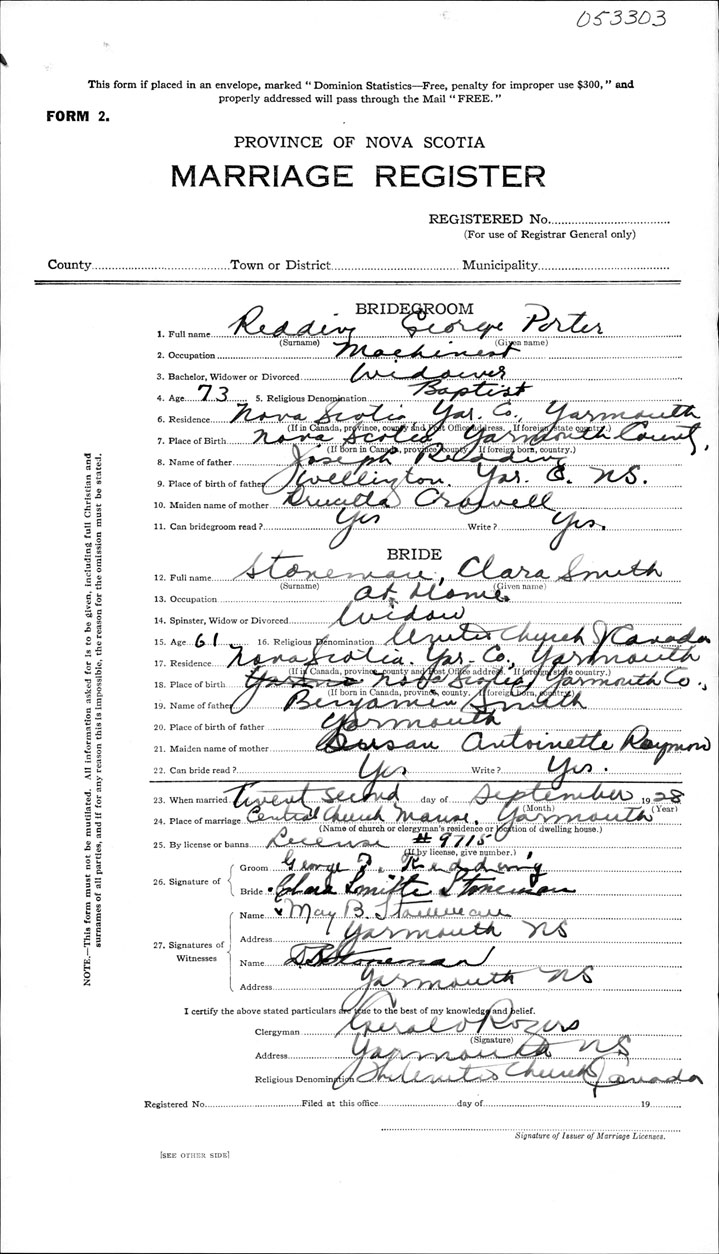 053303
This form if placed in an envelope, marked "Dominion Statistics—Free, penalty for improper use $300," and
properly addressed will pass through the Mail "FREE."
FORM 2.
PROVINCE OF NOVA SCOTIA
MARRIAGE REGISTER
REGISTERED No.
(For use of Registrar General only)
County Town or District Municipality
BRIDEGROOM
1. Full name Redding George Porter
(Surname) (Given name)
2. Occupation Machinest
3. Bachelor, Widower or Divorced Widower
4. Age 73 5. Religious Denomination Baptist
6. Residence Nova Scotia Yar. Co., Yarmouth
(If in Canada, province, county and Post Office address. If foreign state country.)
7. Place of Birth Nova Scotia, Yarmouth County,
(If born in Canada, province, county. If foreign born, country.)
8. Name of father Joseph Redding
9. Place of birth of father Wellington. Yar. Co. NS.
10. Maiden name of mother Drucilla Crowell
11. Can bridegroom read? Yes Write? Yes.
BRIDE
12. Full name Stoneman, Clara Smith
(Surname) (Given name)
13. Occupation at Home
14. Spinster, Widow or Divorced Widow
15. Age 61 16. Religious Denomination United Church of Canada
17. Residence Nova Scotia. Yar. Co., Yarmouth
(If in Canada, province, county and Post Office address. If foreign state country.)
18. Place of birth Nova Scotia, Yarmouth Co.,
(If born in Canada, province, county. If foreign born, country.)
19. Name of father Benjamin Smith
20. Place of birth of father Yarmouth
21. Maiden name of mother Susan Antoinette Raymond
22. Can bride read? Yes Write? Yes.
23. When married Twent second day of September 1928
(Month) (Year)
24. Place of marriage Central Church Manse, Yarmouth
(Name of church or clergyman's residence or location of dwelling house.)
25. By license or banns License # 9715
(If by license, give number.)
26. Signature of Groom George P. Redding
Bride Clara Smith Stoneman
27. Signatures of Witnesses
Name May B. Stoneman
Address Yarmouth NS
Name Stoneman
Address Yarmouth NS
I certify the above stated particulars are true to the best of my knowledge and belief.
Clergyman Gerald Rogers
(Signature)
Address Yarmouth NS
Religious Denomination United Church Canada
Registered No. Filed at this office day of 19
Signature of Issuer of Marriage Licenses.
[SEE OTHER SIDE]
NOTE.—This form must not be mutilated. All information asked for is to be given, including full Christian and
surnames of all parties, and if for any reason this is impossible, the reason for the omission must be stated.